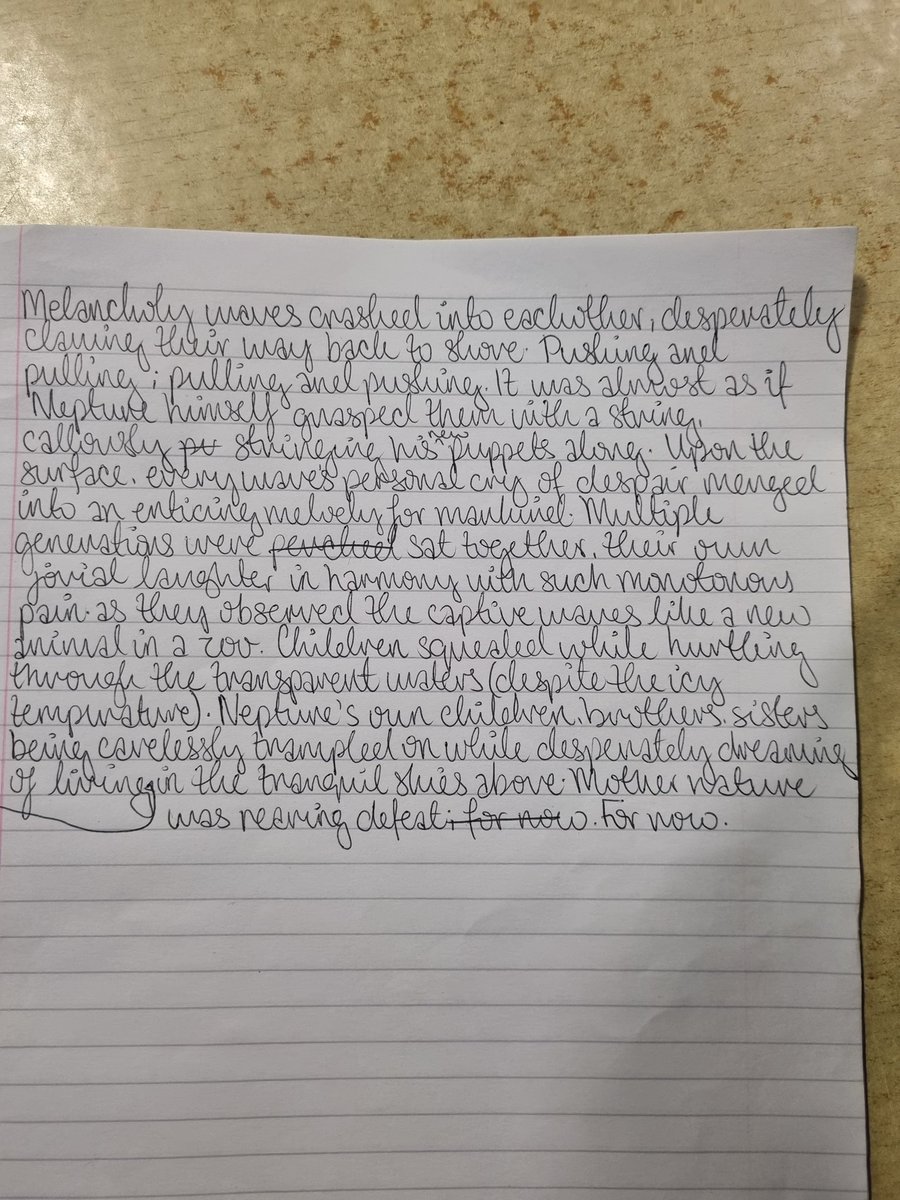 Melancholy waves crashed into eachother, desperately
clawing their way back to shore. Pushing and
pulling; pulling and pushing. It was almost as if
Neptune himself grasped them with a string,
callously pu stringing his new puppets along. Upon the
surface, every wave's personal cry of despair merged
into an enticing melody for mankind. Multiple
generations were perched sat together, their own
jovial laughter in harmony with such monotonous
pain as they observed the captive waves like a new
animal in a zoo. Children squealed while hurtling
through the transparent waters (despite the icy
tempurature). Neptune's own children, brothers, sisters
being carelessly trampled on while desperately dreaming
of living in the tranquil skies above. Mother nature
was nearing defeat; for now. For now.